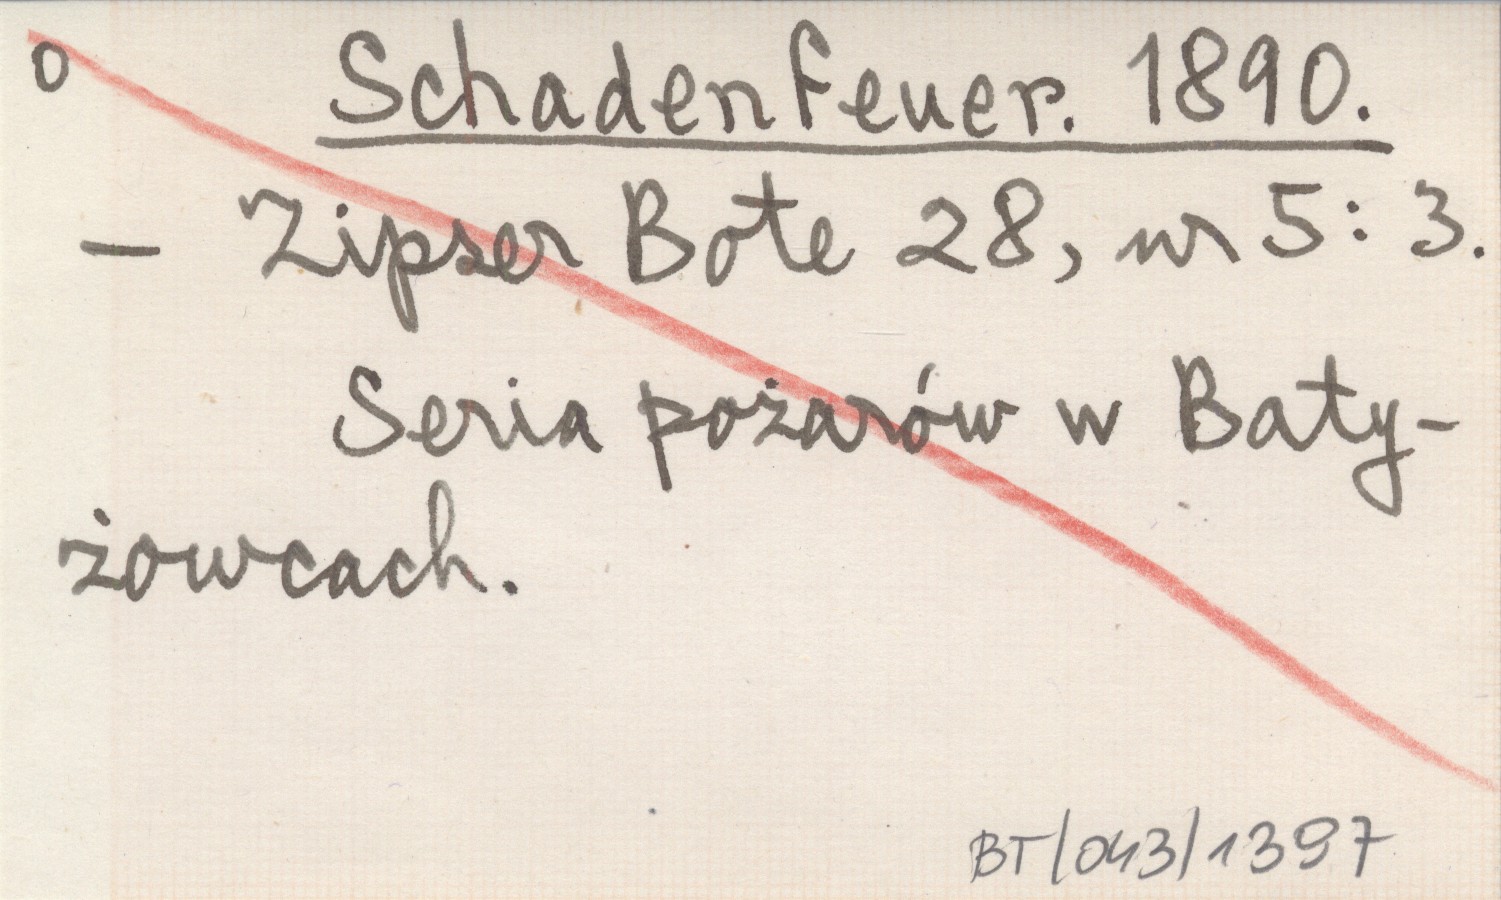 o Schadenfeuer. 1890.
— Zipser Bote 28, nr 5: 3.
Seria pożarów w Baty-
żowcach.
BT/043/1397